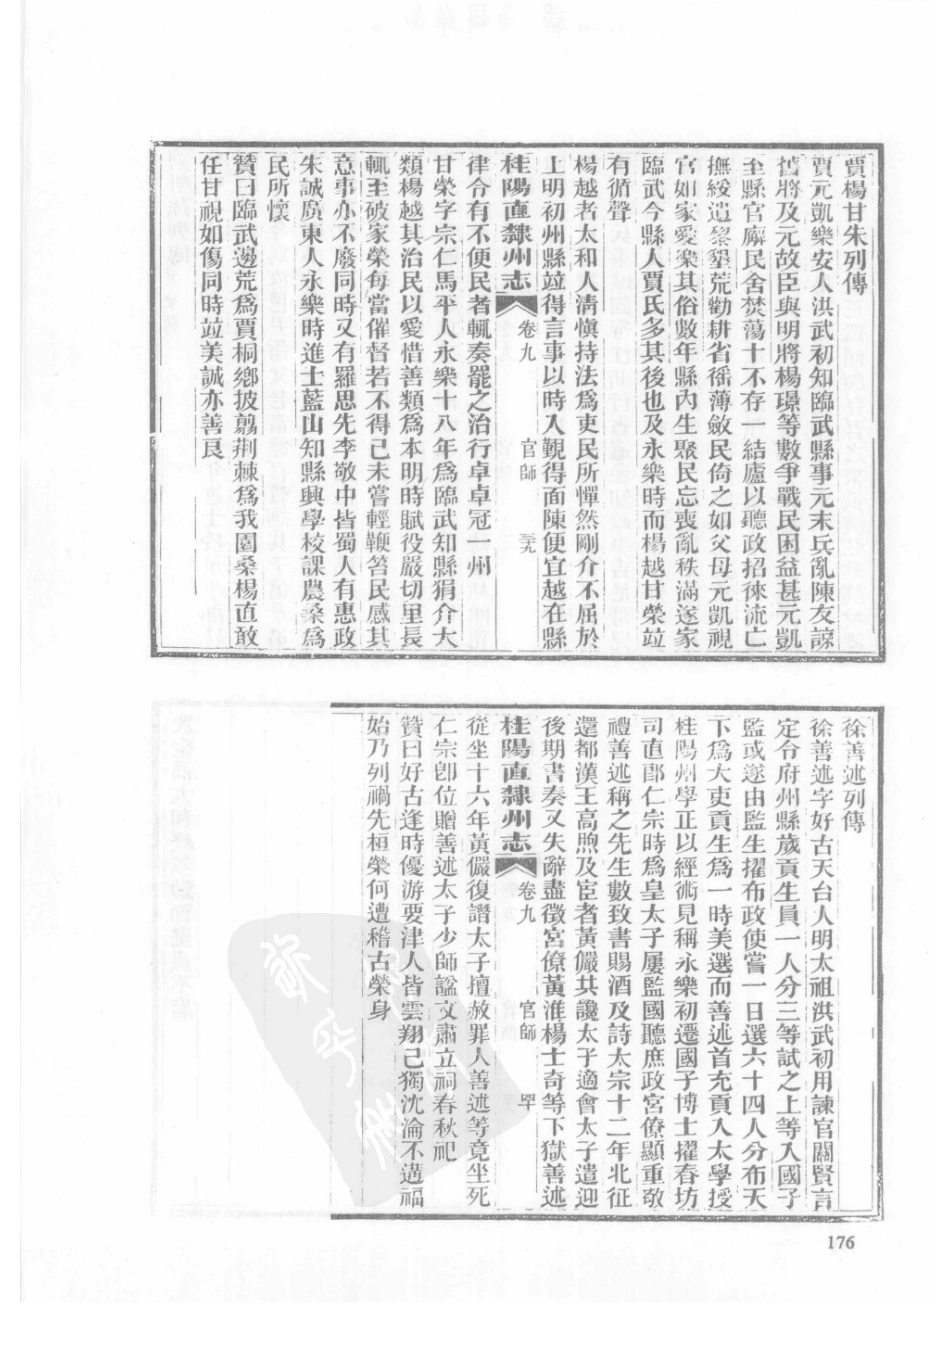 賈楊甘朱列傳
賈元凱樂安人洪武初知臨武縣事元末兵亂陳友諒
舊將及元故臣與明將楊璟等數爭戰民困益甚元凱
至縣官廨民舍焚蕩十不存一結廬以聽政招徠流亡
撫綏遺黎墾荒勸耕省徭薄斂民倚之如父母元凱視
官如家愛樂其俗數年縣內生聚民忘喪亂秩滿遂家
臨武今縣人賈氏多其後也及永樂時而楊越甘榮竝
有循聲
楊越者太和人清愼持法爲吏民所憚然剛介不屈於
上明初州縣竝得言事以時入覲得面陳便宜越在縣
桂陽直隸州志 卷九 官師 三九
律令有不便民者輒奏罷之治行卓卓冠一州
甘榮字宗仁馬平人永樂十八年爲臨武知縣狷介大
類楊越其治民以愛惜善類爲本明時賦役嚴切里長
輒至破家榮每當催督若不得已未嘗輕鞭笞民感其
意事亦不廢同時又有羅思先李敬中皆蜀人有惠政
朱誠廣東人永樂時進士藍山知縣興學校課農桑爲
民所懷
贊曰臨武邊荒爲賈桐鄉披翦荆棘爲我園桑楊直敢
任甘視如傷同時竝美誠亦善良
徐善述列傳
徐善述字好古天台人明太祖洪武初用諫官關賢言
定令府州縣歲貢生員一人分三等試之上等入國子
監或遂由監生擢布政使嘗一日選六十四人分布天
下爲大吏貢生爲一時美選而善述首充貢入太學授
桂陽州學正以經術見稱永樂初遷國子博士擢春坊
司直郎仁宗時爲皇太子屢監國聽庶政宮僚顯重敬
禮善述稱之先生數致書賜酒及詩太宗十二年北征
還都漢王高煦及宦者黃儼共讒太子適會太子遣迎
後期書奏又失辭盡徵宮僚黃淮楊士奇等下獄善述
桂陽直隸州志 卷九 官師 罕
從坐十六年黃儼復譖太子擅赦罪人善述等竟坐死
仁宗卽位贈善述太子少師諡文肅立祠春秋祀
贊曰好古逢時優游要津人皆雲翔己獨沈淪不遘福
始乃列禍先桓榮何遭稽古榮身
176